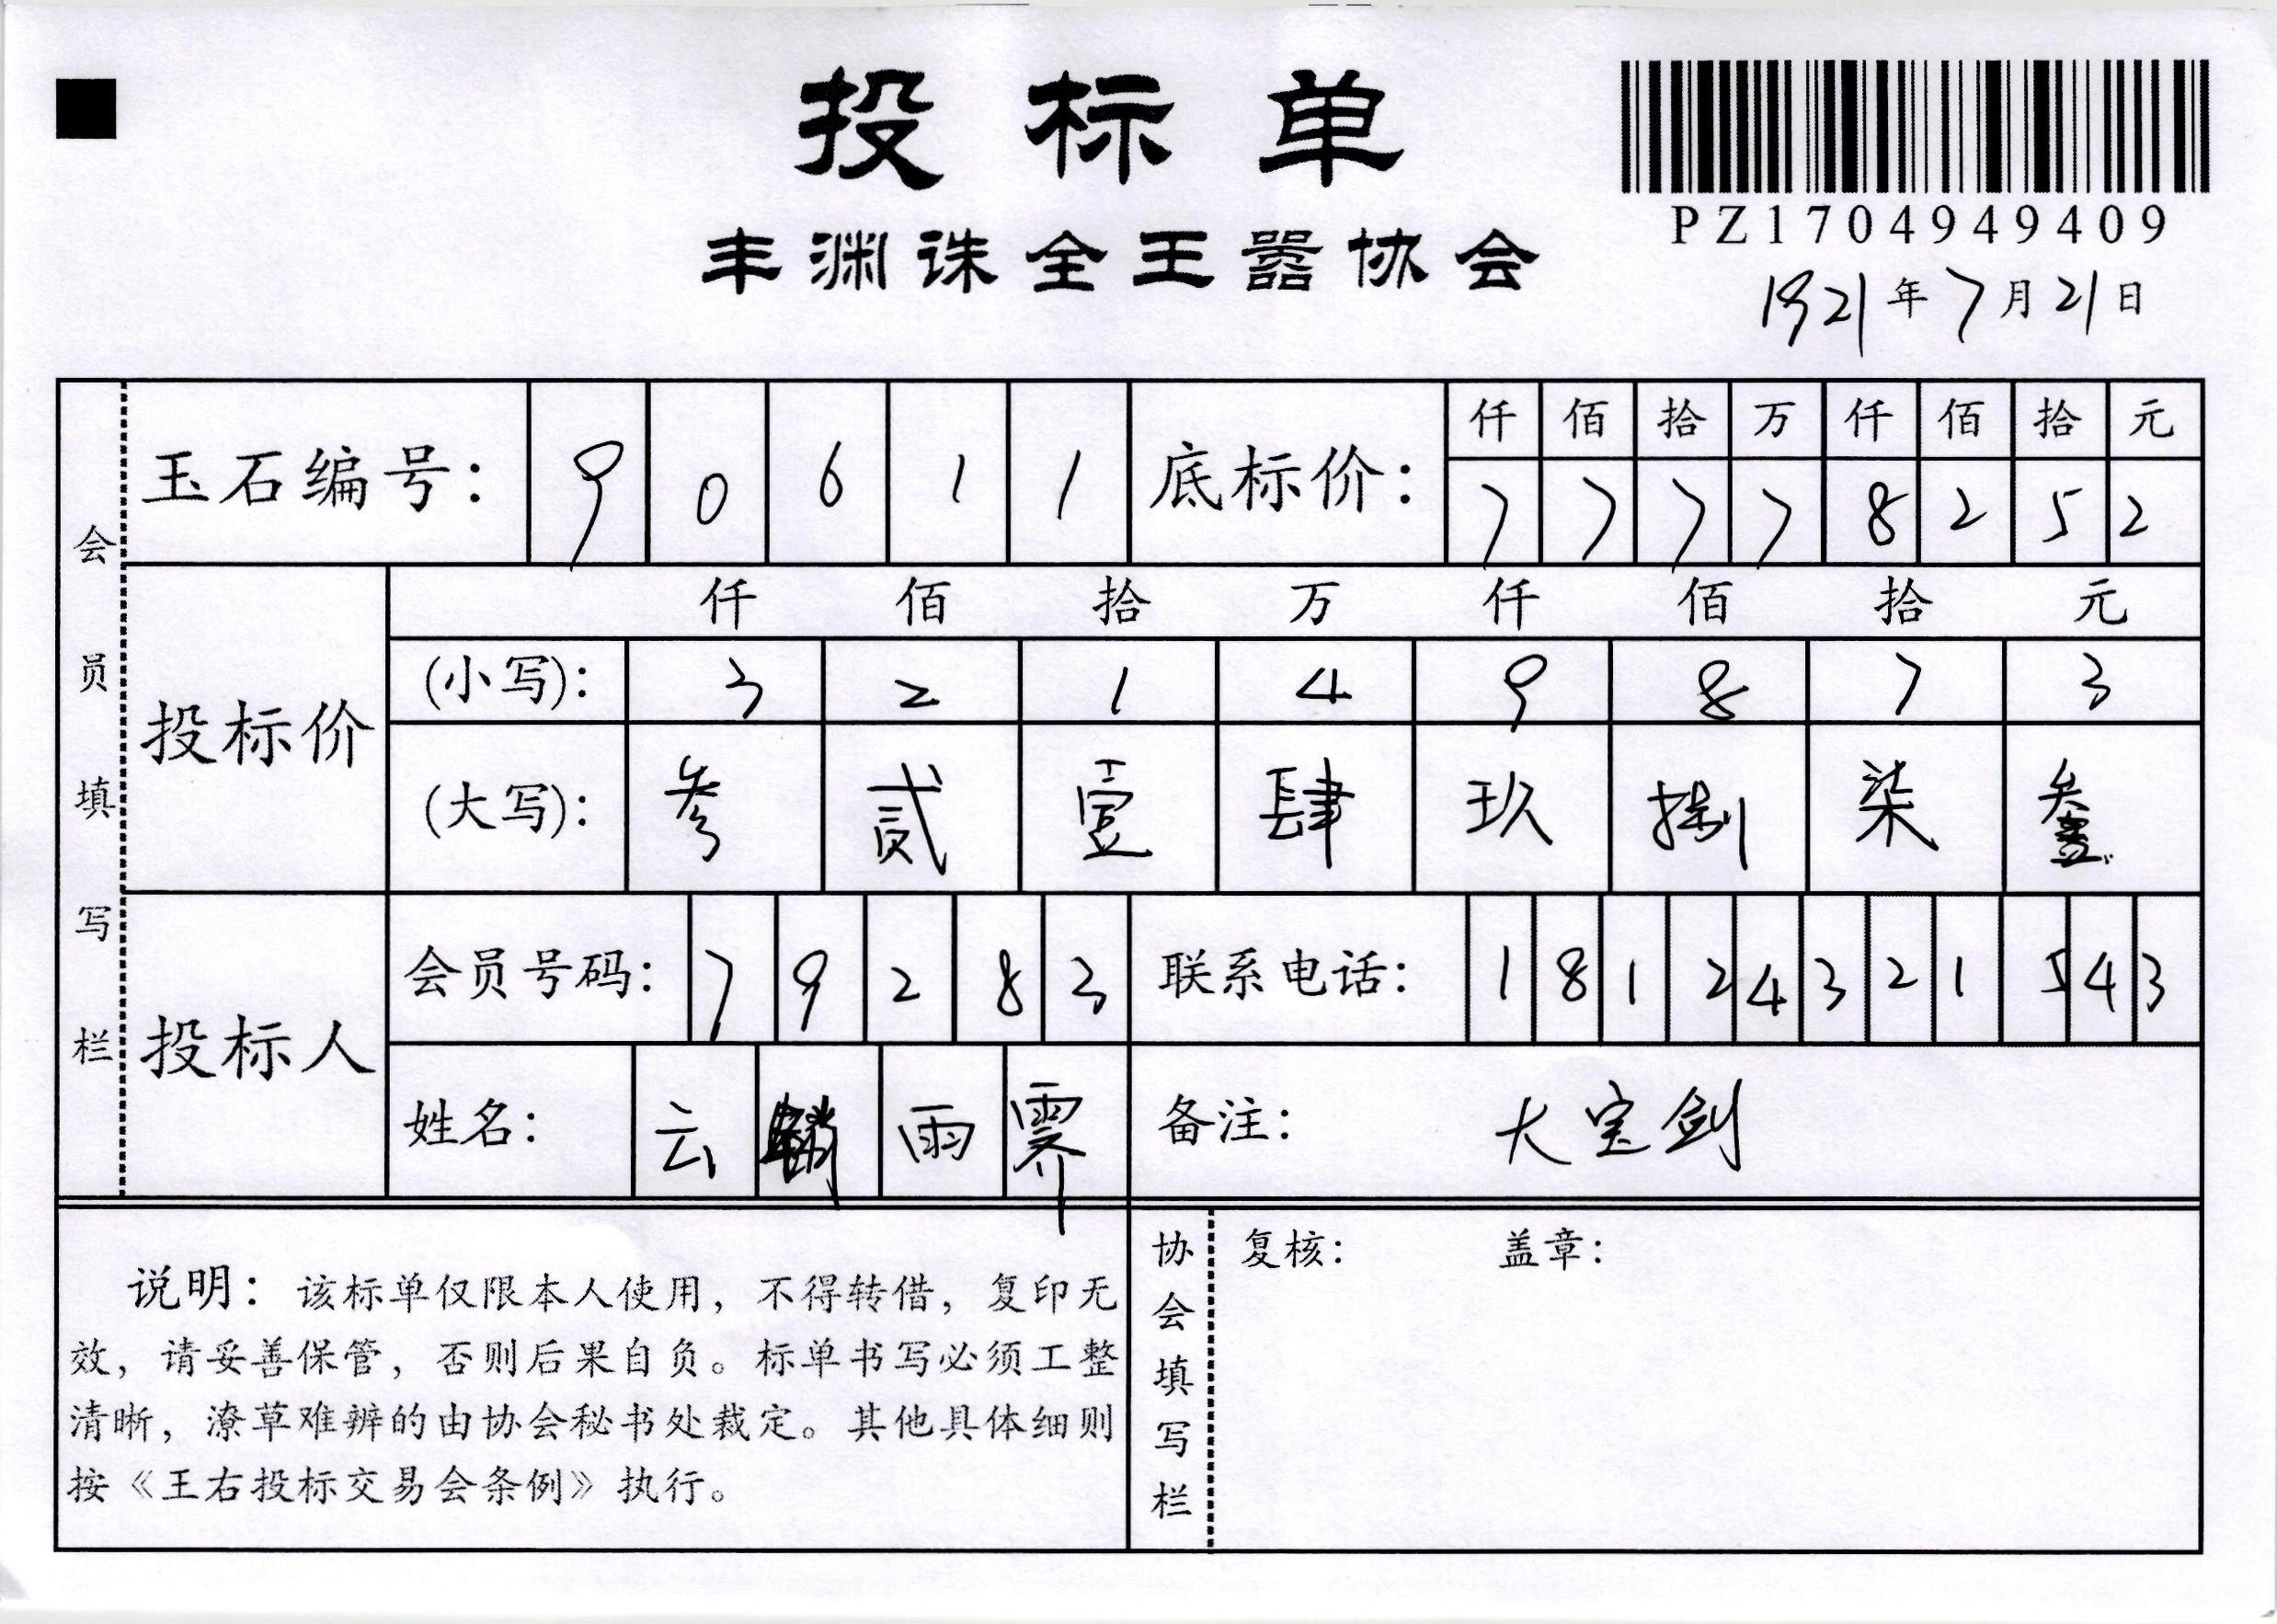 投标单
PZ1704949409
丰渊诛全王嚣协会
1921年7月21日
会员填写栏
玉石编号：90611
底标价：
仟佰拾万仟佰拾元
77778252
投标价
仟佰拾万仟佰拾元
(小写)：32149873
(大写)：参贰壹肆玖捌柒叁
投标人
会员号码：79283
联系电话：18124321543
姓名：云 雨霁
备注：大宝剑
说明：该标单仅限本人使用，不得转借，复印无
效，请妥善保管，否则后果自负。标单书写必须工整
清晰，潦草难辨的由协会秘书处裁定。其他具体细则
按《王右投标交易会条例》执行。
协会填写栏
复核： 盖章：